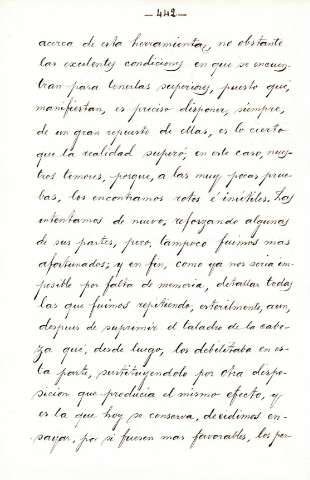 — 442 —
acerca de esta herramienta, no obstante
las excelentes condiciones en que se encuen-
tran para tenerlas superiores, puesto que,
manifiestan, es preciso disponer, siempre,
de un gran repuesto de ellas, es lo cierto
que la realidad superó, en este caso, nues-
tros temores, porque, a las muy pocas prue-
bas, los encontramos rotos é inútiles. Las
intentamos de nuevo, reforzando algunas
de sus partes, pero, tampoco fuimos mas
afortunados; y en fin, como ya nos seria im-
posible por falta de memoria, detallar todas
las que fuimos repitiendo, esterilmente, aun,
despues de suprimir el taladro de la cabe-
za que, desde luego, los debilitaba en es-
ta parte, sustituyendolo por otra dispo-
sicion que producia el mismo efecto, y
es la que hoy se conserva, decidimos en-
sayar, por si fuesen mas favorables, los per-